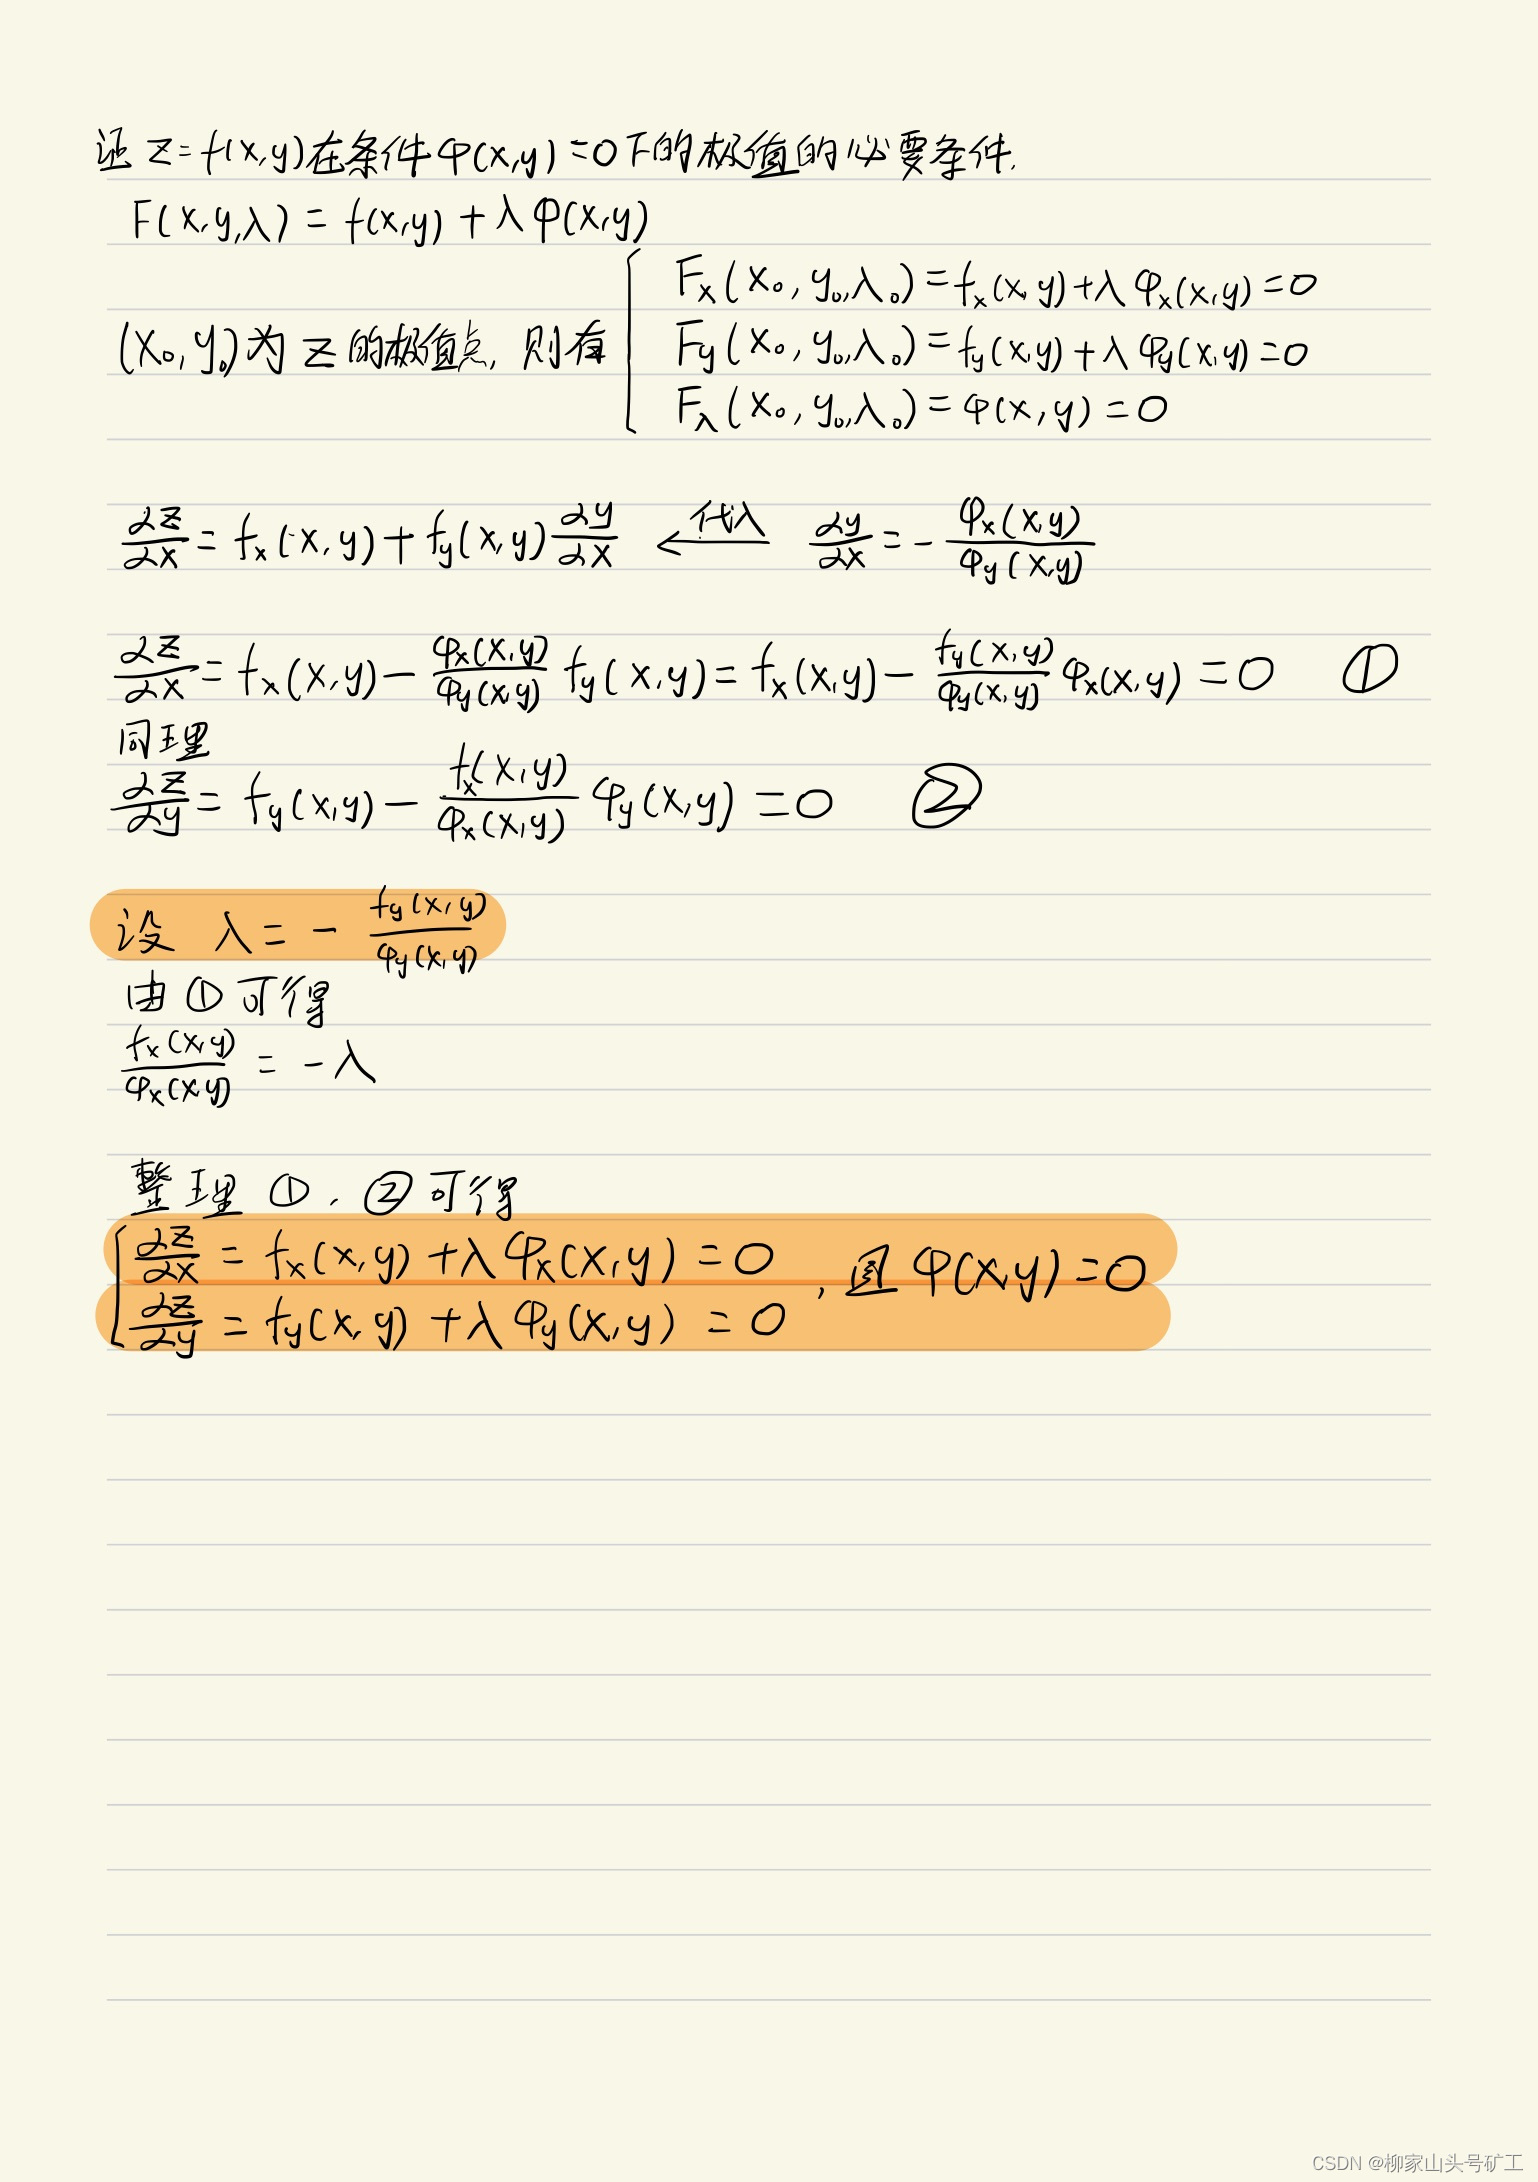 证 z=f(x,y)在条件φ(x,y)=0下的极值的必要条件.
F(x,y,λ) = f(x,y) + λφ(x,y)
(x₀,y₀)为z的极值点,则有
F_x(x₀,y₀,λ₀)=f_x(x,y)+λφ_x(x,y)=0
F_y(x₀,y₀,λ₀)=f_y(x,y)+λφ_y(x,y)=0
F_λ(x₀,y₀,λ₀)=φ(x,y)=0
∂z/∂x = f_x(x,y)+f_y(x,y)∂y/∂x ←代入 ∂y/∂x = -φ_x(x,y)/φ_y(x,y)
∂z/∂x = f_x(x,y) - φ_x(x,y)/φ_y(x,y) f_y(x,y) = f_x(x,y) - f_y(x,y)/φ_y(x,y) φ_x(x,y) = 0 ①
同理
∂z/∂y = f_y(x,y) - f_x(x,y)/φ_x(x,y) φ_y(x,y) = 0 ②
设 λ = - f_y(x,y)/φ_y(x,y)
由①可得
f_x(x,y)/φ_x(x,y) = -λ
整理①,②可得
∂z/∂x = f_x(x,y)+λφ_x(x,y) = 0
∂z/∂y = f_y(x,y)+λφ_y(x,y) = 0
,且φ(x,y)=0
CSDN @柳家山头号矿工